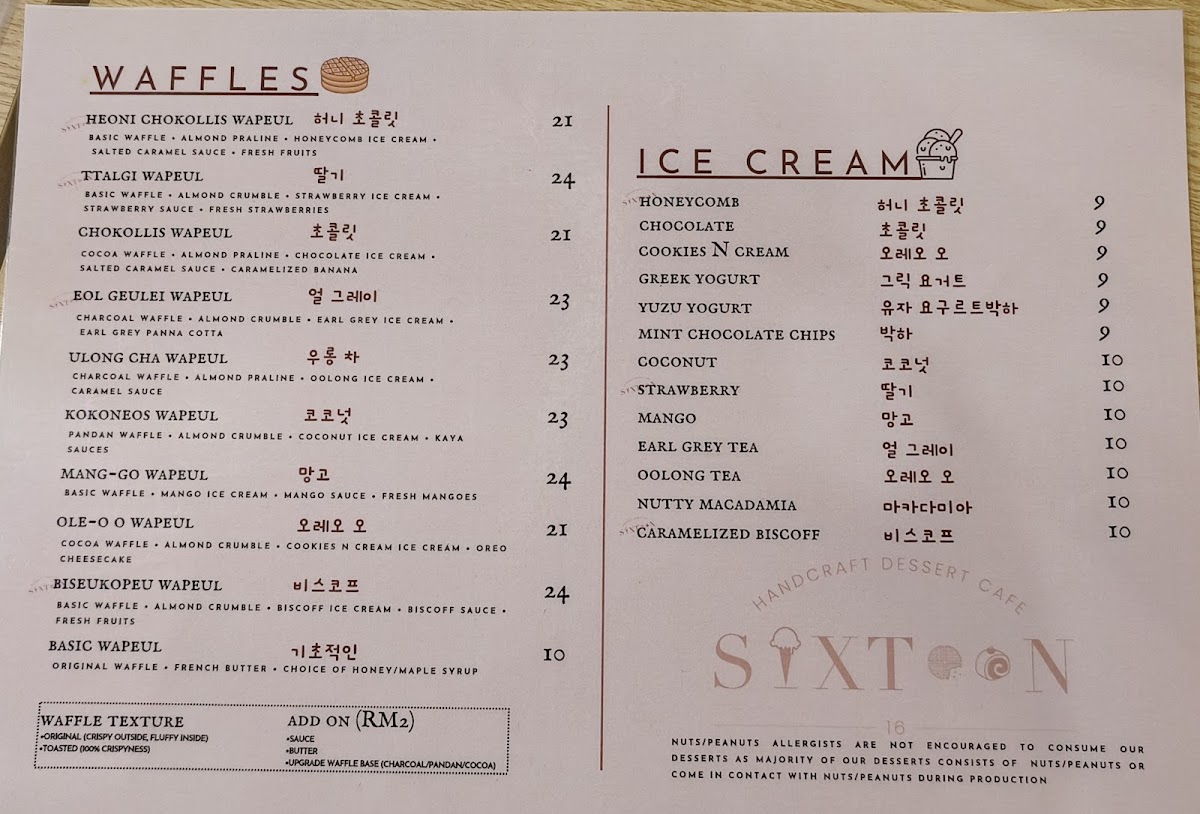 WAFFLES
HEONI CHOKOLLIS WAPEUL 허니 초콜릿 21
BASIC WAFFLE • ALMOND PRALINE • HONEYCOMB ICE CREAM •
SALTED CARAMEL SAUCE • FRESH FRUITS
TTALGI WAPEUL 딸기 24
BASIC WAFFLE • ALMOND CRUMBLE • STRAWBERRY ICE CREAM •
STRAWBERRY SAUCE • FRESH STRAWBERRIES
CHOKOLLIS WAPEUL 초콜릿 21
COCOA WAFFLE • ALMOND PRALINE • CHOCOLATE ICE CREAM •
SALTED CARAMEL SAUCE • CARAMELIZED BANANA
EOL GEULEI WAPEUL 얼 그레이 23
CHARCOAL WAFFLE • ALMOND CRUMBLE • EARL GREY ICE CREAM •
EARL GREY PANNA COTTA
ULONG CHA WAPEUL 우롱 차 23
CHARCOAL WAFFLE • ALMOND PRALINE • OOLONG ICE CREAM •
CARAMEL SAUCE
KOKONEOS WAPEUL 코코넛 23
PANDAN WAFFLE • ALMOND CRUMBLE • COCONUT ICE CREAM • KAYA
SAUCES
MANG-GO WAPEUL 망고 24
BASIC WAFFLE • MANGO ICE CREAM • MANGO SAUCE • FRESH MANGOES
OLE-O O WAPEUL 오레오 오 21
COCOA WAFFLE • ALMOND CRUMBLE • COOKIES N CREAM ICE CREAM • OREO
CHEESECAKE
BISEUKOPEU WAPEUL 비스코프 24
BASIC WAFFLE • ALMOND CRUMBLE • BISCOFF ICE CREAM • BISCOFF SAUCE •
FRESH FRUITS
BASIC WAPEUL 기초적인 10
ORIGINAL WAFFLE • FRENCH BUTTER • CHOICE OF HONEY/MAPLE SYRUP
WAFFLE TEXTURE
•ORIGINAL (CRISPY OUTSIDE, FLUFFY INSIDE)
•TOASTED (100% CRISPYNESS)
ADD ON (RM2)
•SAUCE
•BUTTER
•UPGRADE WAFFLE BASE (CHARCOAL/PANDAN/COCOA)
ICE CREAM
HONEYCOMB 허니 초콜릿 9
CHOCOLATE 초콜릿 9
COOKIES N CREAM 오레오 오 9
GREEK YOGURT 그릭 요거트 9
YUZU YOGURT 유자 요구르트박하 9
MINT CHOCOLATE CHIPS 박하 9
COCONUT 코코넛 10
STRAWBERRY 딸기 10
MANGO 망고 10
EARL GREY TEA 얼 그레이 10
OOLONG TEA 오레오 오 10
NUTTY MACADAMIA 마카다미아 10
CARAMELIZED BISCOFF 비스코프 10
HANDCRAFT DESSERT CAFE
SIXTOON
16
NUTS/PEANUTS ALLERGISTS ARE NOT ENCOURAGED TO CONSUME OUR
DESSERTS AS MAJORITY OF OUR DESSERTS CONSISTS OF NUTS/PEANUTS OR
COME IN CONTACT WITH NUTS/PEANUTS DURING PRODUCTION